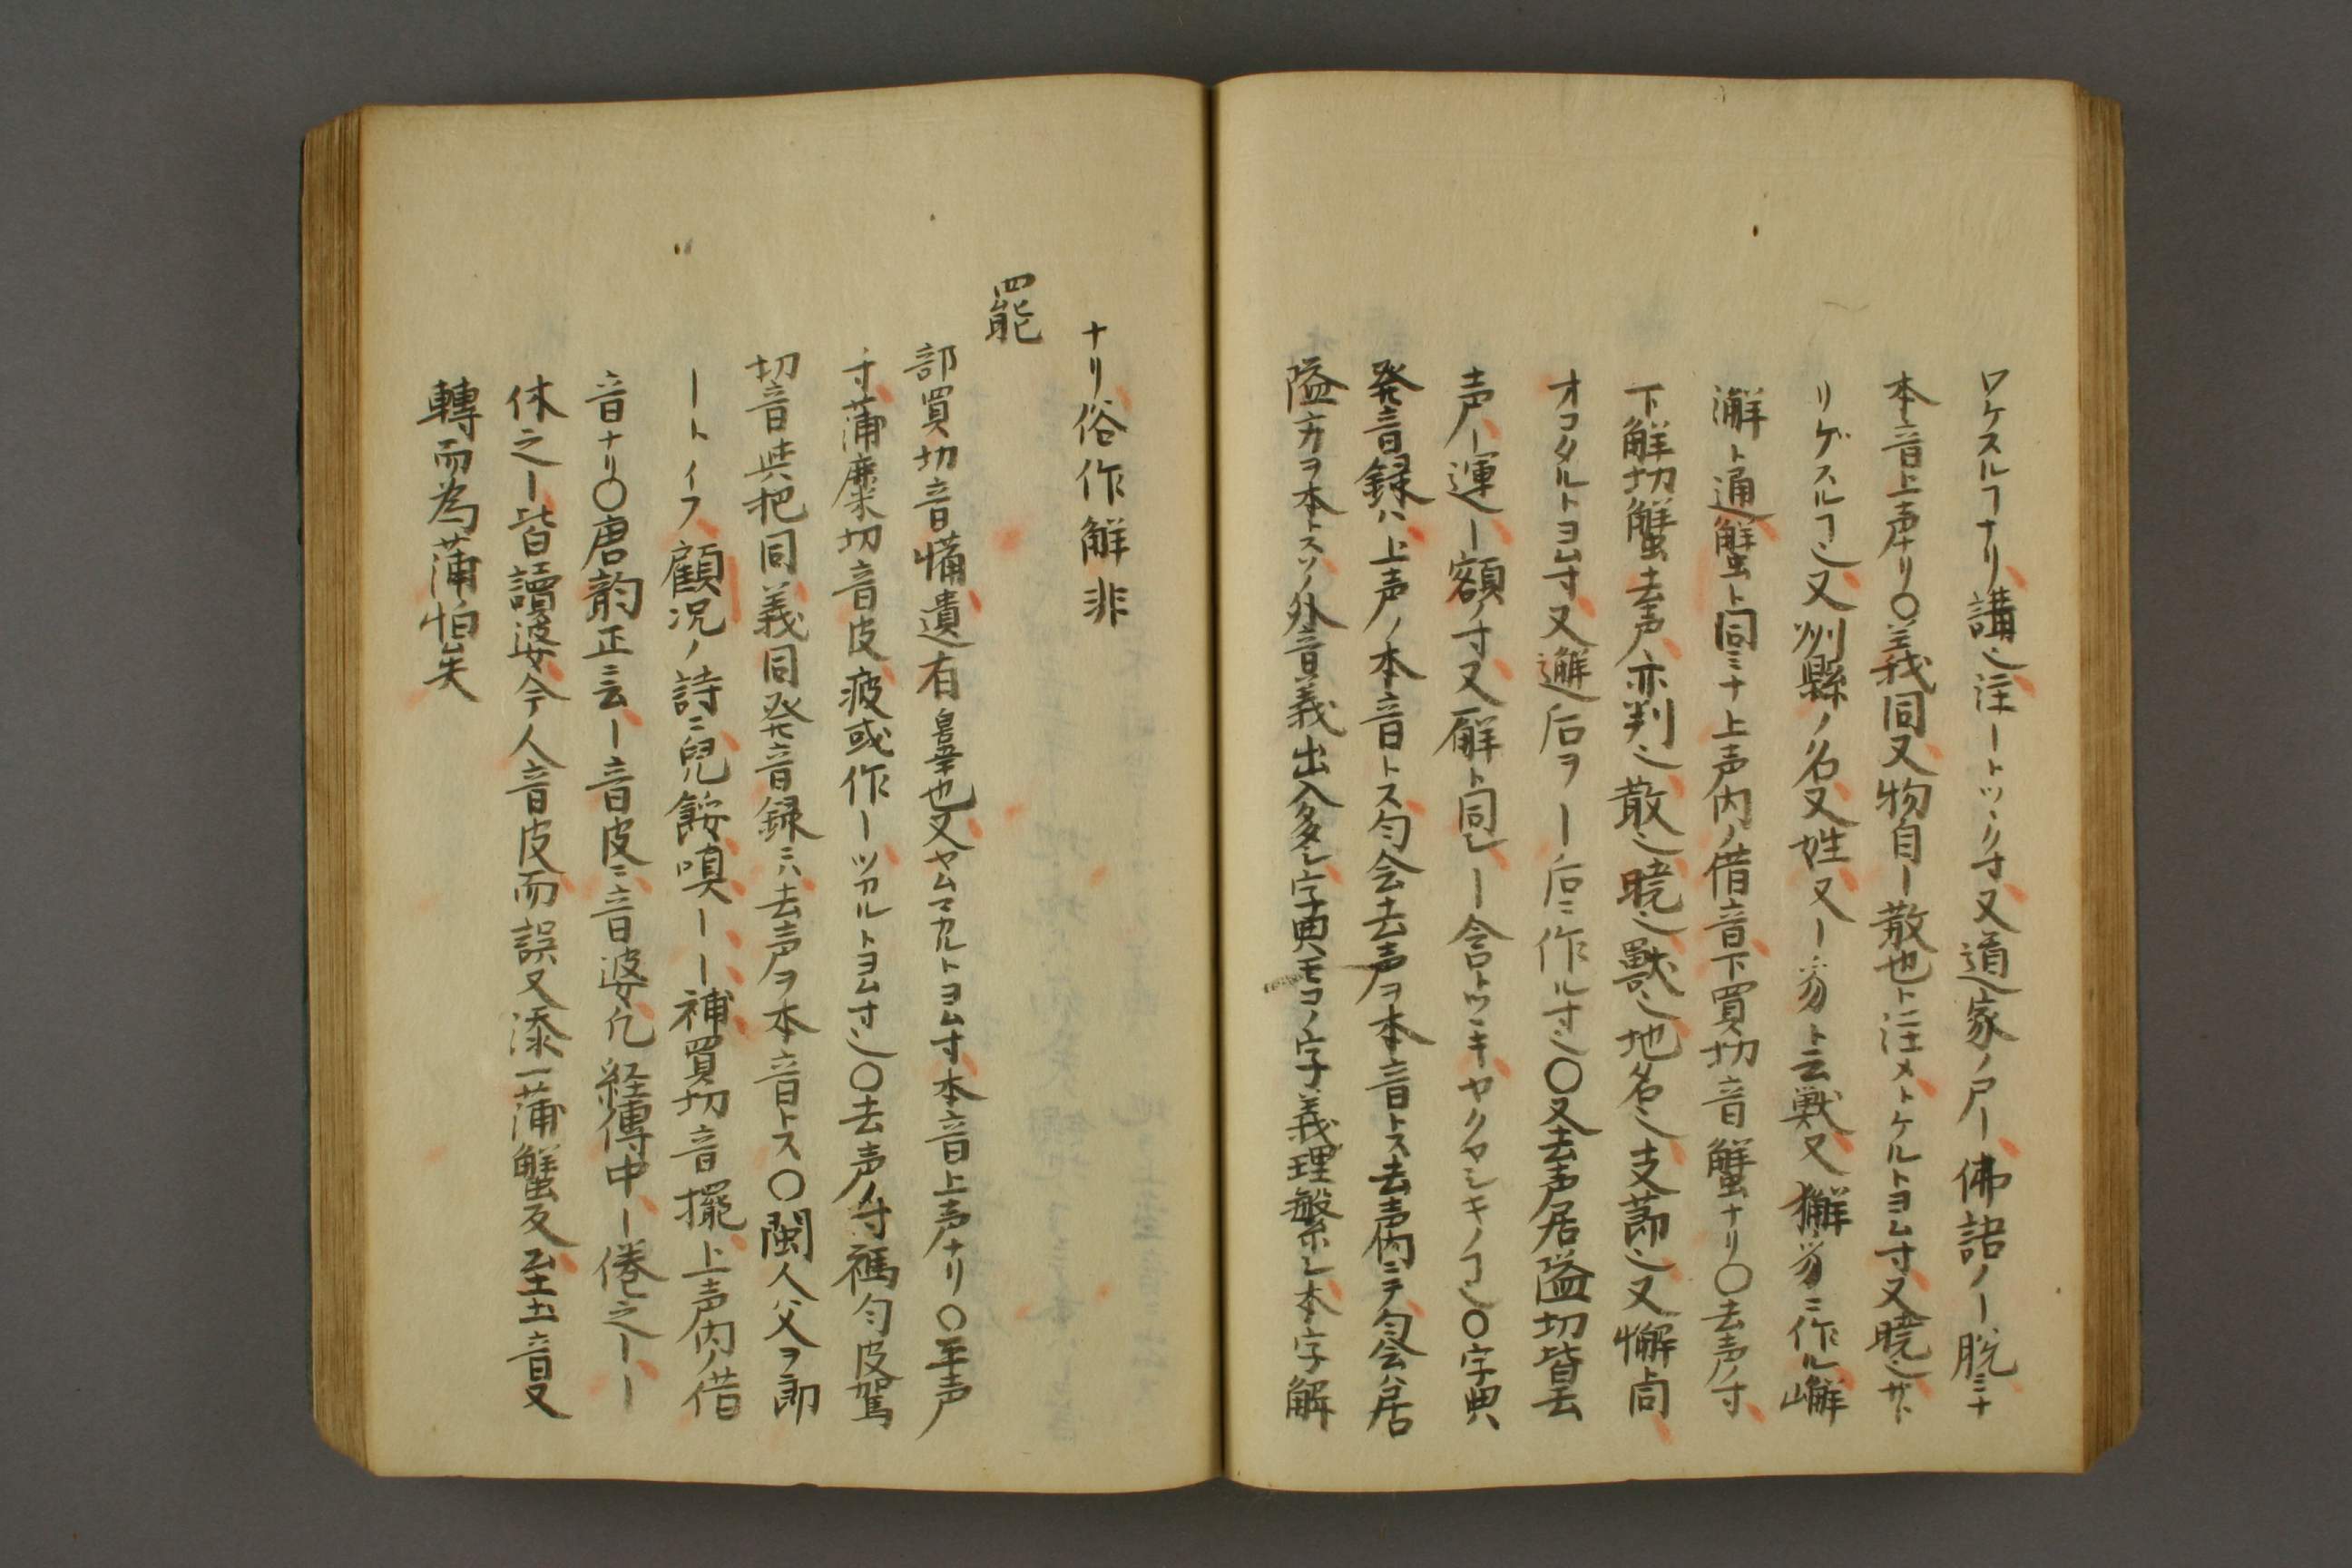 ワケスルヿナリ講也注ートツヽク寸又道家ノ尸ー佛語ノー脱ミナ
本音上声ナリ〇義同又物自ー散也ト注メトケルトヨム寸又曉也サト
リゲスルヿ也又州縣ノ名又姓又ー豸ト云獣又獬豸ニ作ル嶰
澥ト通蟹ト同ミナ上声内ノ借音下買切音蟹ナリ〇去声ノ寸
下解切蟹去声亦判也散也曉也獸也地名也支莭也又懈ト同
オコタルトヨム寸又邂后ヲー后ニ作ル寸也〇又去声居隘切皆去
声ー運ー額ノ寸又廨ト同シー舎トツヽキヤクヤシキノヿ也〇字典
発音録ハ上声ノ本音トス匀会去声ヲ本音トス去声内ニテ匀会ハ居
隘方ヲ本トスソノ外音義出入多シ字典モコノ字義理繁シ本字解
ナリ俗作觧非
罷
部買切音憊遺有辠也又ヤムマカルトヨム寸本音上声ナリ〇平声
寸蒲糜切音皮疲或作ーツカルトヨム寸也〇去声ノ寸禡匀皮駕
切音與把同義同発音録ニハ去声ヲ本音トス〇閩人父ヲ郎
ートイフ顧况ノ詩ニ兒餒嗔ーー補買切音擺上声内ノ借
音ナリ〇唐韵正ニ云ー音皮ニ音婆凢経傳中ー倦之ーー
休之ー皆讀婆今人音皮而誤又添一蒲蟹反至土音又
轉而為蒲怕矣